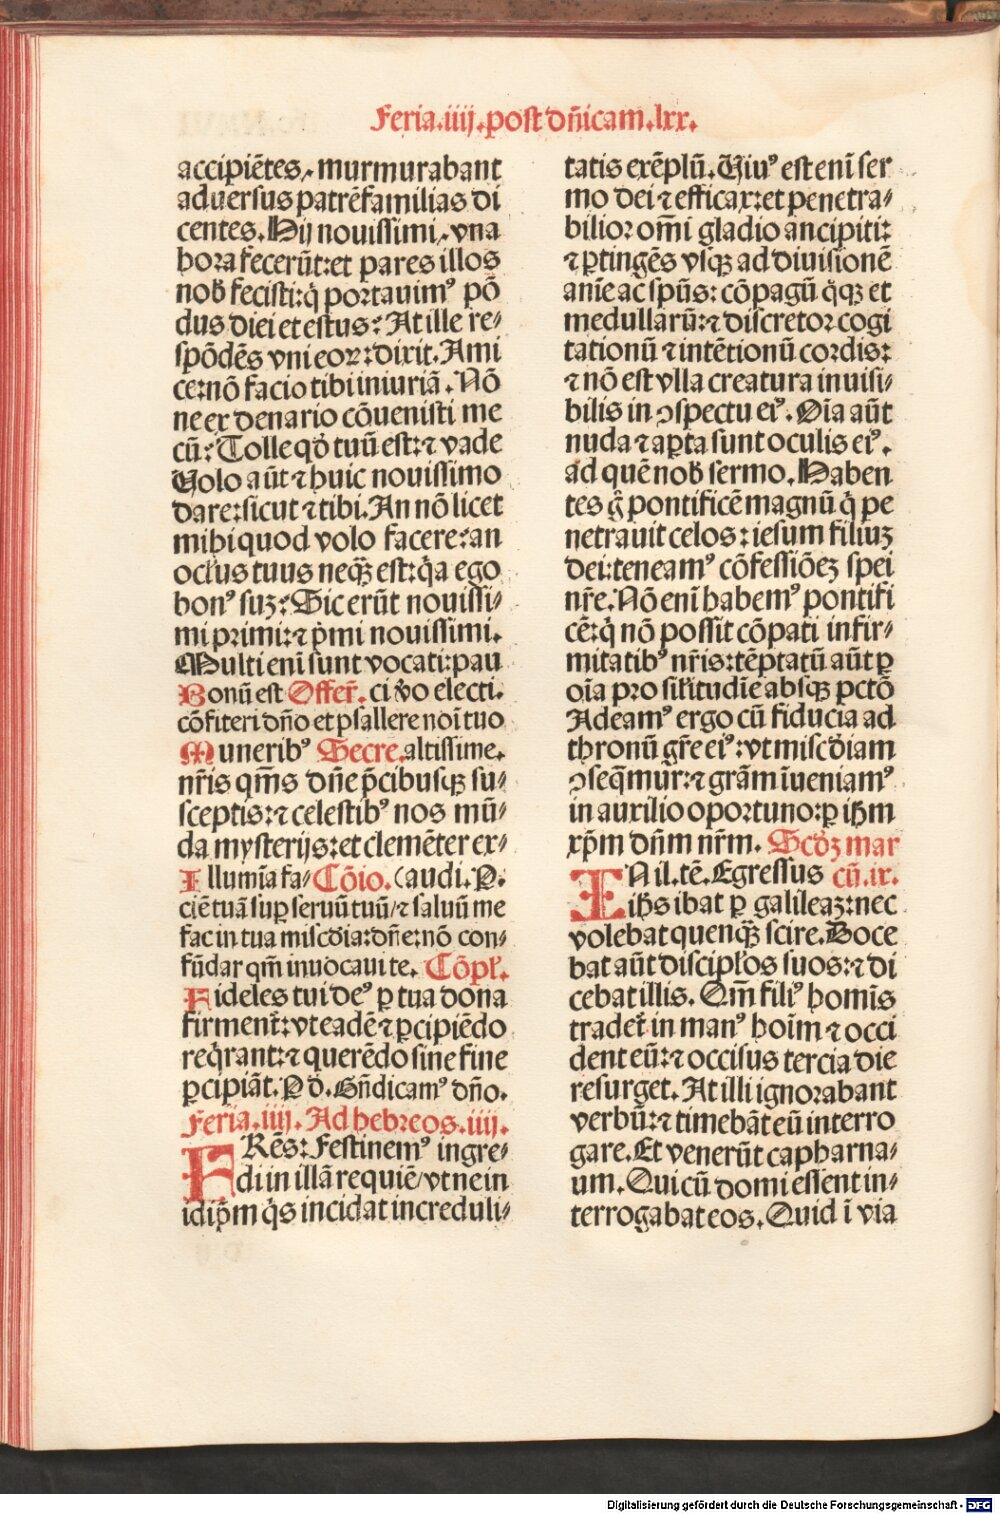 Feria.iiij.post dn̄icam.lxx.
accipiētes, murmurabant
aduersus patrēfamilias di
centes. Hij nouissimi, vna
hora fecerūt: et pares illos
nob̄ fecisti: q̄ portauimꝰ pō
dus diei et estus? At ille re⸗
spōdēs vni eoꝝ: dixit. Ami
ce: nō facio tibi iniuriā. Nō
ne ex denario cōuenisti me
cū? Tolle qd̄ tuū est: ⁊ vade
Uolo aūt ⁊ huic nouissimo
dare: sicut ⁊ tibi. An nō licet
mihi quod volo facere: an
ocl̓us tuus neqꝫ̄ est: q̄a ego
bonꝰ suꝫ? Sic erūt nouissi⸗
mi primi: ⁊ p̄mi nouissimi.
Multi enī sunt vocati: pau
Bonū est Offer̄. ci v̄o electi.
cōfiteri dn̄o et psallere noī tuo
Muneribꝰ Secre. altissime.
nr̄is qm̄s dn̄e p̄cibusqꝫ su⸗
sceptis: ⁊ celestibꝰ nos mū⸗
da mysterijs: et clemēter ex⸗
Illumīa fa⸗ Cōio. (audi. P.
ciē tuā suꝑ seruū tuū/ ⁊ saluū me
fac in tua misc̄dia: dn̄e: nō con⸗
fūdar qm̄ inuocaui te. Cōpl̄.
Fideles tui deꝰ ꝑ tua dona
firment̄: vt eadē ⁊ ꝑcipiēdo
req̄rant: ⁊ querēdo sine fine
ꝑcipiāt. P d. Bn̄dicamꝰ dn̄o.
Feria.iiij. Ad hebreos.iiij.
FRēs: Festinemꝰ ingre⸗
di in illā requiē/ vt ne in
idip̄m q̄s incidat increduli⸗
tatis exēplū. Uiuꝰ est enī ser
mo dei ⁊ efficax: et penetra⸗
bilior om̄i gladio ancipiti:
⁊ ꝑtingēs vsqꝫ ad diuisionē
anīe ac sp̄us: cōpagū q̄qꝫ et
medullarū: ⁊ discretor cogi
tationū ⁊ intētionū cordis:
⁊ nō est vlla creatura inuisi⸗
bilis in ꝯspectu eiꝰ. Oīa aūt
nuda ⁊ aꝑta sunt oculis eiꝰ.
ad quē nob̄ sermo. Haben
tes g̊ pontificē magnū q̄ pe
netrauit celos: iesum filiuꝫ
dei: teneamꝰ cōfessiōeꝫ spei
nr̄e. Nō enī habemꝰ pontifi
cē: q̄ nō possit cōpati infir⸗
mitatibꝰ nr̄is: tēptatū aūt ꝑ
oīa pro sil̄itudīe absqꝫ pctō
Adeamꝰ ergo cū fiducia ad
thronū gr̄e eiꝰ: vt misc̄diam
ꝯseq̄mur: ⁊ grām īueniamꝰ
in auxilio oportuno: ꝑ ihm̄
xp̄m dn̄m nr̄m. Scd̄ꝫ mar
IN il. tē. Egressus cū.ix.
ih̄s ibat ꝑ galileaꝫ: nec
volebat quenqꝫ̄ scire. Doce
bat aūt discipl̓os suos: ⁊ di
cebat illis. Qm̄ filiꝰ homīs
tradet̄ in manꝰ hoīm ⁊ occi
dent eū: ⁊ occisus tercia die
resurget. At illi ignorabant
verbū: ⁊ timebāt eū interro
gare. Et venerūt capharna⸗
um. Qui cū domi essent in⸗
terrogabat eos. Quid ī via
Digitalisierung gefördert durch die Deutsche Forschungsgemeinschaft - DFG